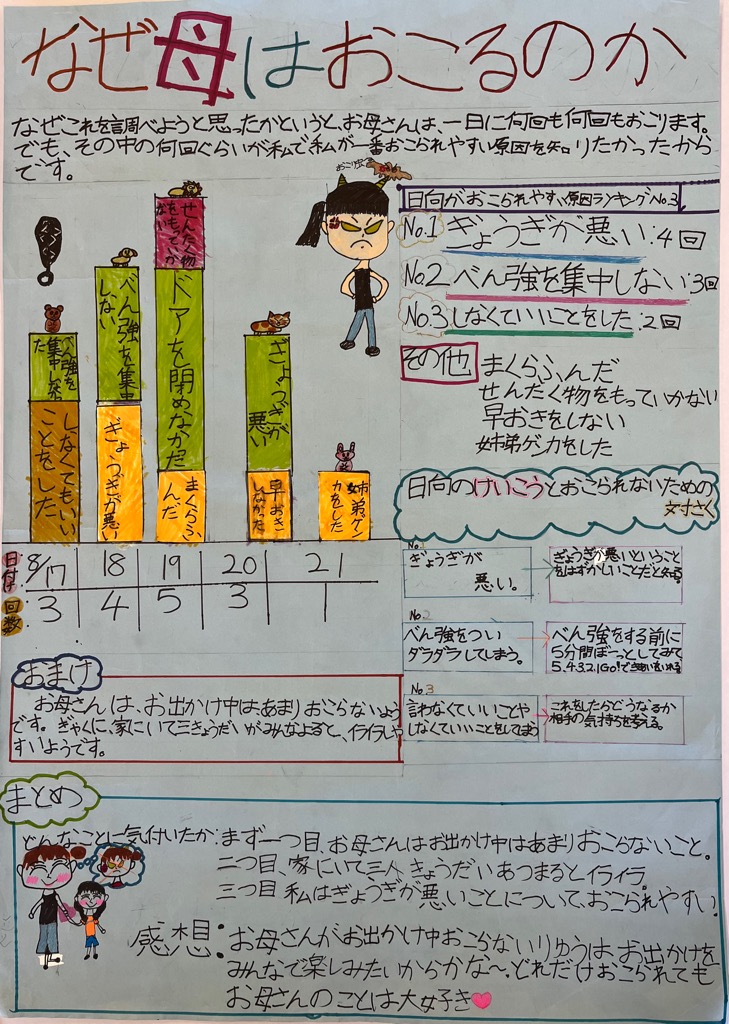 なぜ母はおこるのか
なぜこれを調べようと思ったかというと、お母さんは、一日に何回も何回もおこります。
でも、その中の何回ぐらいが私で私が一番おこられやすい原因を知りたかったから
です。
べん強を集中しなかった
しなくてもいいことをした
べん強を集中しない
ぎょうぎが悪い
せんたく物をもっていかない
ドアを閉めなかった
まくらふんだ
ぎょうぎが悪い
早おきしなかった
姉弟ゲンカをした
日付け 8/17 18 19 20 21
回数 3 4 5 3 1
日向がおこられやすい原因ランキングNo.3
No.1 ぎょうぎが悪い:4回
No.2 べん強を集中しない:3回
No.3 しなくていいことをした:2回
その他 まくらふんだ
せんたく物をもっていかない
早おきをしない
姉弟ゲンカをした
日向のけいこうとおこられないための
対さく
No.1
ぎょうぎが
悪い。
ぎょうぎが悪いということ
をはずかしいことだと知る
No.2
べん強をつい
ダラダラしてしまう。
べん強をする前に
5分間ぼーっとしてみて
5.4.3.2.1Go!できあいをいれる
No.3
言わなくていいことや
しなくていいことをしてしまう
これをしたらどうなるか
相手の気持ちを考える。
おまけ
お母さんは、お出かけ中はあまりおこらないよう
です。ぎゃくに、家にいて三きょうだいがみんなよると、イライラしや
すいようです。
まとめ
どんなことに気付いたか:まず一つ目、お母さんはお出かけ中はあまりおこらないこと。
二つ目、家にいて三人きょうだいあつまるとイライラ。
三つ目 私はぎょうぎが悪いことについて、おこられやすい。
感想:お母さんがお出かけ中おこらないりゅうは、お出かけを
みんなで楽しみたいからかな〜。どれだけおこられても
お母さんのことは大好き♥